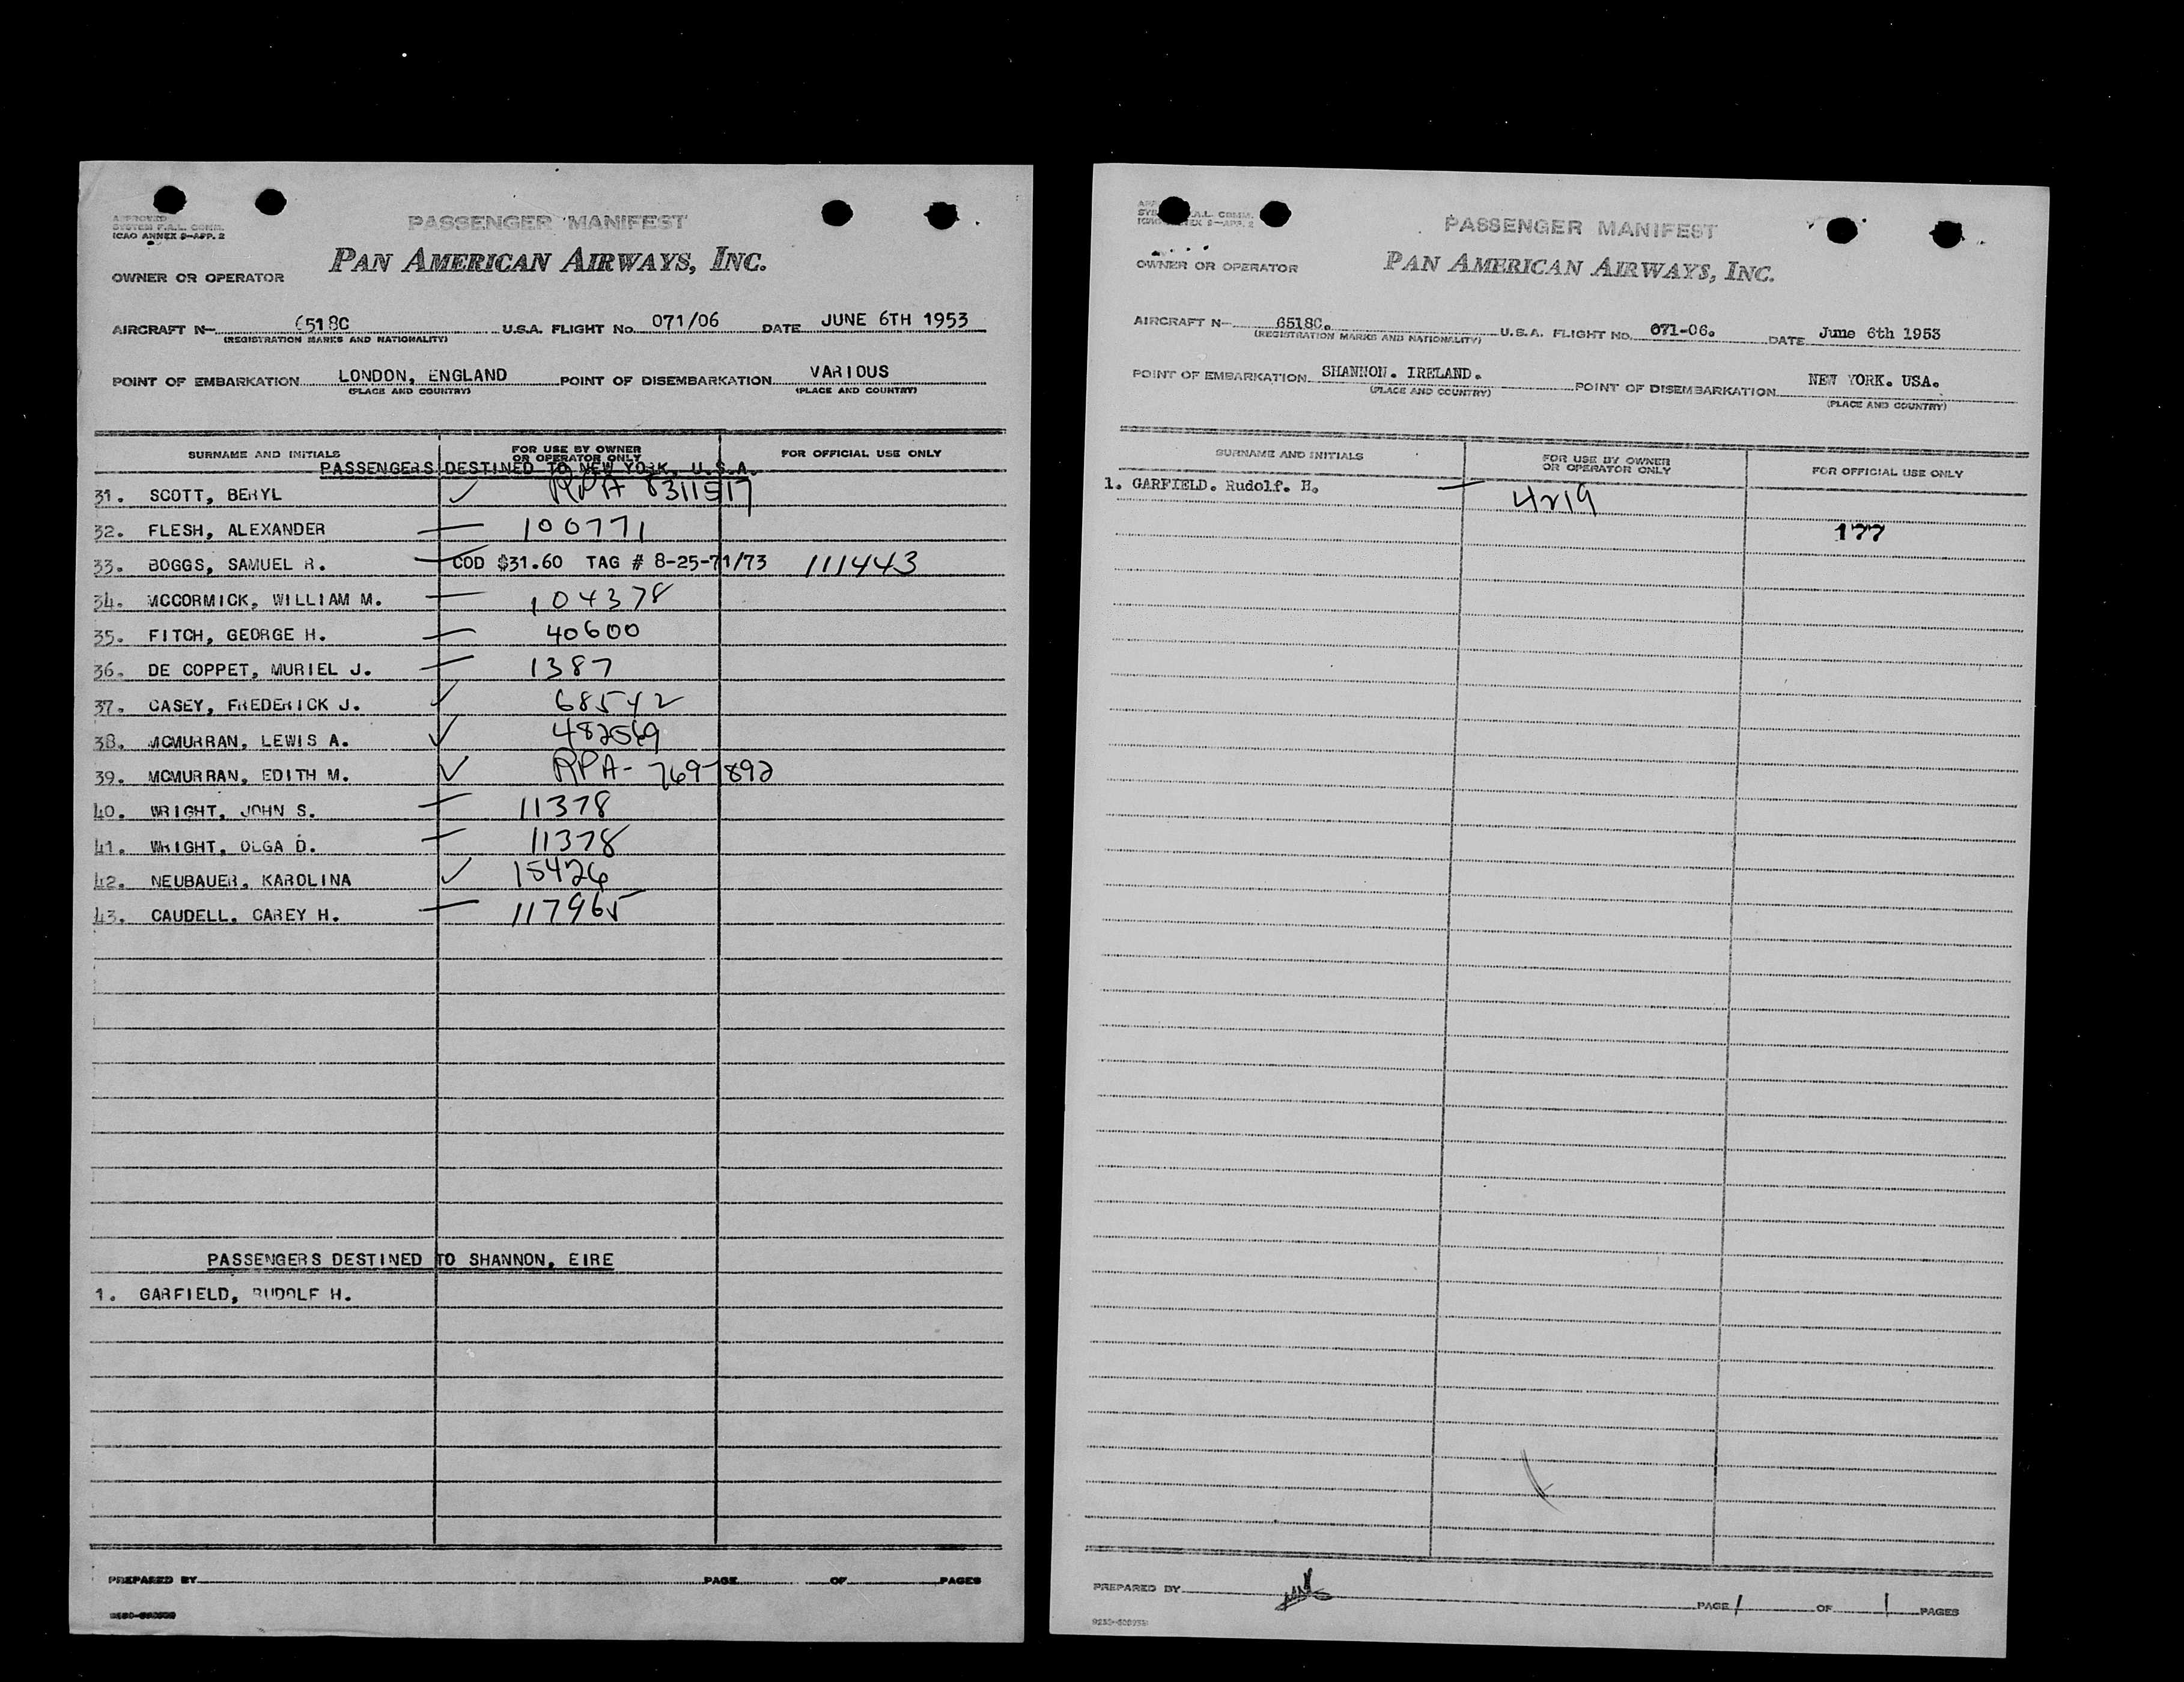 APPROVED
SYSTEM F.A.L. COMM.
ICAO ANNEX 9—APP. 2
PASSENGER MANIFEST
PAN AMERICAN AIRWAYS, INC.
OWNER OR OPERATOR
AIRCRAFT N— 6518C U.S.A. FLIGHT No. 071/06 DATE JUNE 6TH 1953
(REGISTRATION MARKS AND NATIONALITY)
POINT OF EMBARKATION LONDON, ENGLAND POINT OF DISEMBARKATION VARIOUS
(PLACE AND COUNTRY) (PLACE AND COUNTRY)
SURNAME AND INITIALS FOR USE BY OWNER OR OPERATOR ONLY FOR OFFICIAL USE ONLY
PASSENGERS DESTINED TO NEW YORK, U.S.A.
31. SCOTT, BERYL ✓ RPA 8311517
32. FLESH, ALEXANDER — 100771
33. BOGGS, SAMUEL R. — COD $31.60 TAG # 8-25-71/73 111443
34. MCCORMICK, WILLIAM M. — 104378
35. FITCH, GEORGE H. — 40600
36. DE COPPET, MURIEL J. — 1387
37. CASEY, FREDERICK J. ✓ 68542
38. MCMURRAN, LEWIS A. ✓ 482569
39. MCMURRAN, EDITH M. ✓ RPA- 7697892
40. WRIGHT, JOHN S. — 11378
41. WRIGHT, OLGA D. — 11378
42. NEUBAUER, KAROLINA ✓ 15426
43. CAUDELL, CAREY H. — 117965
PASSENGERS DESTINED TO SHANNON, EIRE
1. GARFIELD, RUDOLF H.
PREPARED BY PAGE OF PAGES
PASSENGER MANIFEST
PAN AMERICAN AIRWAYS, INC.
OWNER OR OPERATOR
AIRCRAFT N— 6518C. U.S.A. FLIGHT NO. 071-06. DATE June 6th 1953
(REGISTRATION MARKS AND NATIONALITY)
POINT OF EMBARKATION SHANNON. IRELAND. POINT OF DISEMBARKATION NEW YORK. USA.
(PLACE AND COUNTRY) (PLACE AND COUNTRY)
SURNAME AND INITIALS FOR USE BY OWNER OR OPERATOR ONLY FOR OFFICIAL USE ONLY
1. GARFIELD. Rudolf. H. — 4219
177
PREPARED BY PAGE 1 OF 1 PAGES